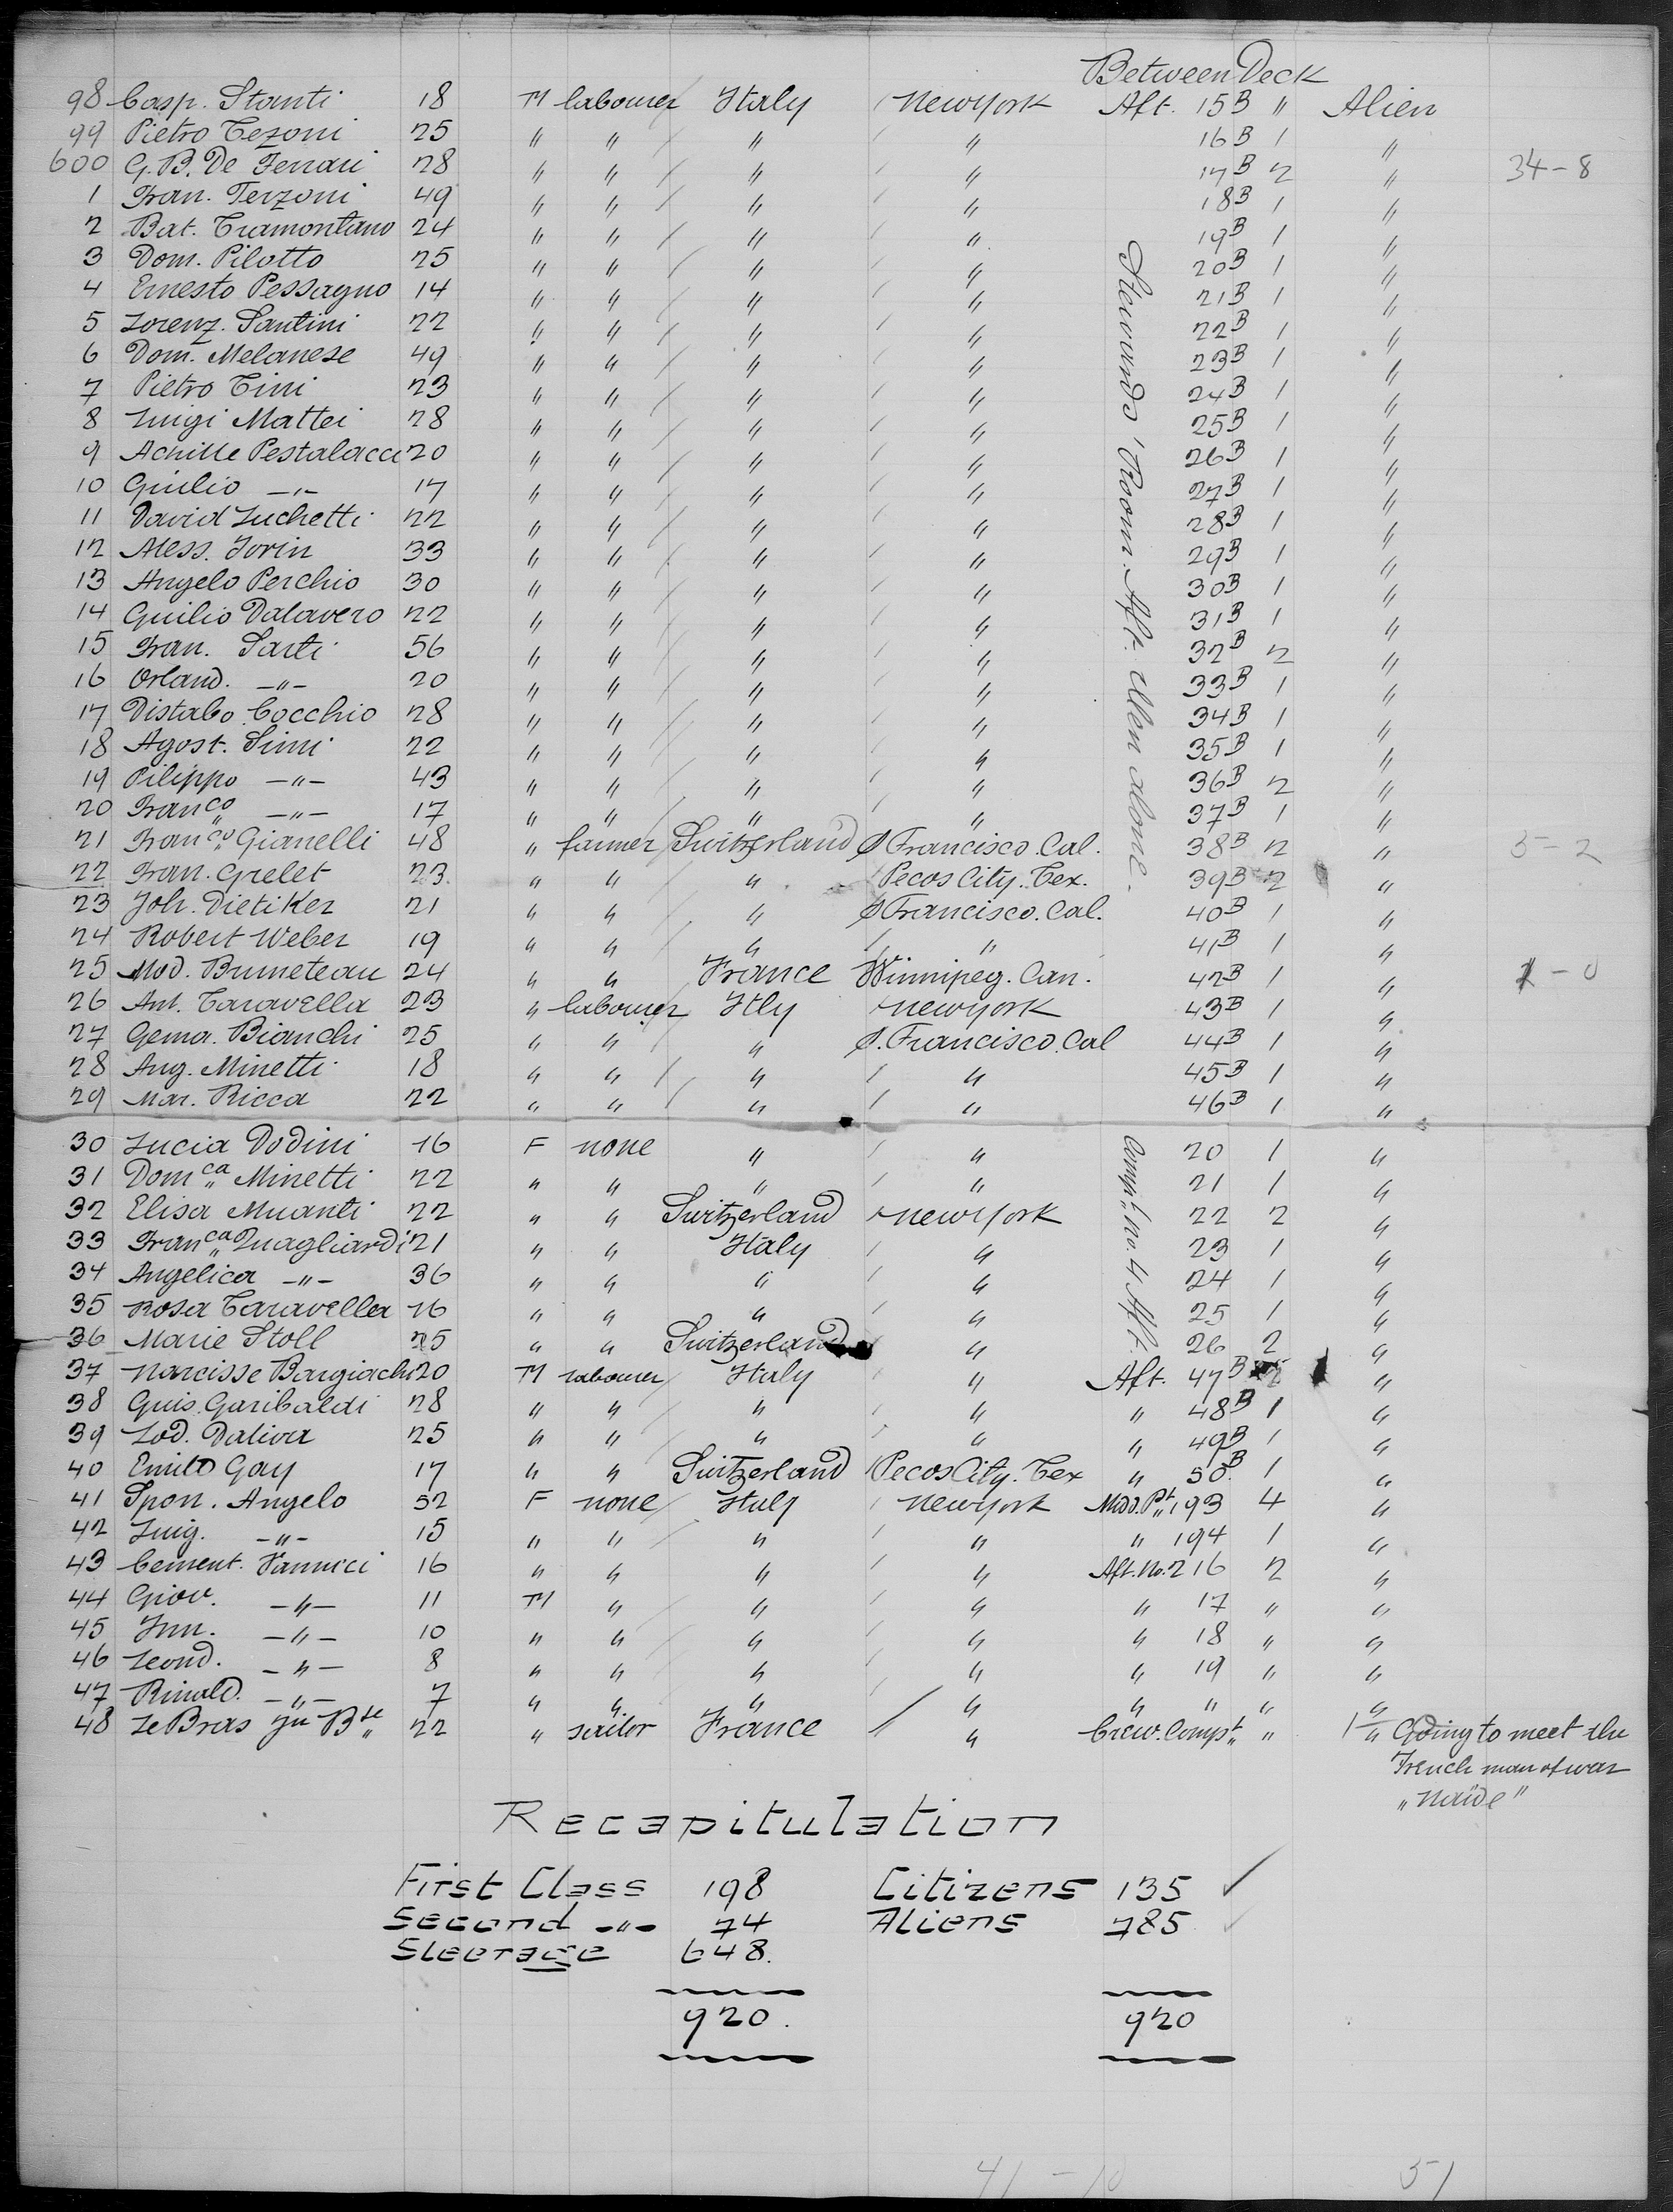 Between Deck
98 Casp. Stanti 18 M labourer Italy New York Aft. 15B " Alien
99 Pietro Tezoni 25 " " " " 16B 1 "
600 G.B. De Ferrari 28 " " " " 17B 2 " 34-8
1 Fran. Terzoni 49 " " " " 18B 1 "
2 Bat. Tramontano 24 " " " " 19B 1 "
3 Dom. Pilotto 25 " " " " 20B 1 "
4 Ernesto Pessagno 14 " " " " 21B 1 "
5 Lorenz. Santini 22 " " " " 22B 1 "
6 Dom. Melanese 49 " " " " 23B 1 "
7 Pietro Tini 23 " " " " 24B 1 "
8 Luigi Mattei 28 " " " " 25B 1 "
9 Achille Pestalacci 20 " " " " 26B 1 "
10 Giulio -"- 17 " " " " 27B 1 "
11 David Luchetti 22 " " " " 28B 1 "
12 Aless. Jorin 33 " " " " 29B 1 "
13 Angelo Perchio 30 " " " " 30B 1 "
14 Guilio Dalavero 22 " " " " 31B 1 "
15 Fran. Sarti 56 " " " " 32B 2 "
16 Orland. -"- 20 " " " " 33B 1 "
17 Distabo Cocchio 28 " " " " 34B 1 "
18 Agost. Simi 22 " " " " 35B 1 "
19 Pilippo -"- 43 " " " " 36B 2 "
20 Franco -"- 17 " " " " 37B 1 "
Stewards' Room. Aft. Men alone.
21 Franco Gianelli 48 " farmer Switzerland S Francisco. Cal. 38B 2 " 5-2
22 Fran. Grelet 23. " " " Pecos City. Tex. 39B 2 "
23 Joh. Dietiker 21 " " " S Francisco. Cal. 40B 1 "
24 Robert Weber 19 " " " " 41B 1 "
25 Mod. Bruneteau 24 " " France Winnipeg. Can. 42B 1 " 1-0
26 Ant. Taravella 23 " labourer Itly New York 43B 1 "
27 Gema. Bianchi 25 " " " S. Francisco. Cal 44B 1 "
28 Aug. Minetti 18 " " " " 45B 1 "
29 Mar. Ricca 22 " " " " 46B 1 "
30 Lucia Dodini 16 F none " " 20 1 "
31 Domca Minetti 22 " " " " 21 1 "
32 Elisa Muanti 22 " " Switzerland New York 22 2 "
33 Franca Quagliardi 21 " " Italy " 23 1 "
34 Angelica -"- 36 " " " " 24 1 "
35 Rosa Taravella 16 " " " " 25 1 "
36 Marie Stoll 25 " " Switzerland " 26 2 "
Compt. no. 4 Aft.
37 Narcisse Bargiachi 20 M labourer Italy " Aft. 47B 2 "
38 Guis. Garibaldi 28 " " " " " 48B 1 "
39 Lod. Daliva 25 " " " " " 49B 1 "
40 Emile Gay 17 " " Switzerland Pecos City. Tex " 50.B 1 "
41 Spon. Angelo 52 F none Italy New York Midd. Pt 193 4 "
42 Luig. -"- 15 " " " " " 194 1 "
43 Cement. Vannici 16 " " " " Aft. No. 2 16 2 "
44 Giov. -"- 11 M " " " " 17 " "
45 Inn. -"- 10 " " " " " 18 " "
46 Leond. -"- 8 " " " " " 19 " "
47 Rinald. -"- 7 " " " " " " " "
48 Le Bras Jn Bte 22 " sailor France " Crew. Compt " 1 " Going to meet the
French man of war
"Naïde"
Recapitulation
First Class 198 Citizens 135 ✓
Second -"- 74 Aliens 785 ✓
Steerage 648.
920. 920
41-10 51